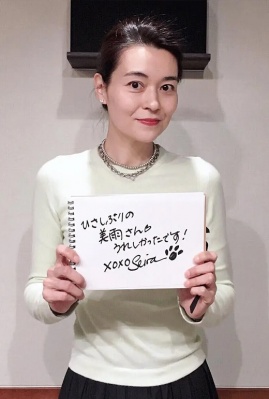 ひさしぶりの
美雨さん♡
うれしかったです!
xoxo Seira